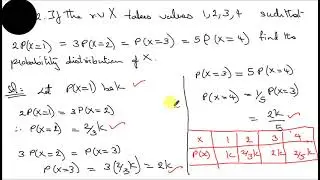 2. If the rv X takes values 1,2,3,4 such that
2P(X=1) = 3P(X=2) = P(X=3) = 5P(X=4) find the
probability distribution of X.
Sol: Let P(X=1) be k
2P(X=1) = 3P(X=2)
∴ P(X=2) = 2/3 k
3P(X=2) = P(X=3)
P(X=3) = 3(2/3 k) = 2k
P(X=3) = 5P(X=4)
P(X=4) = 1/5 P(X=3)
= 2k/5
X 1 2 3 4
P(X) k 2/3k 2k 2/5k